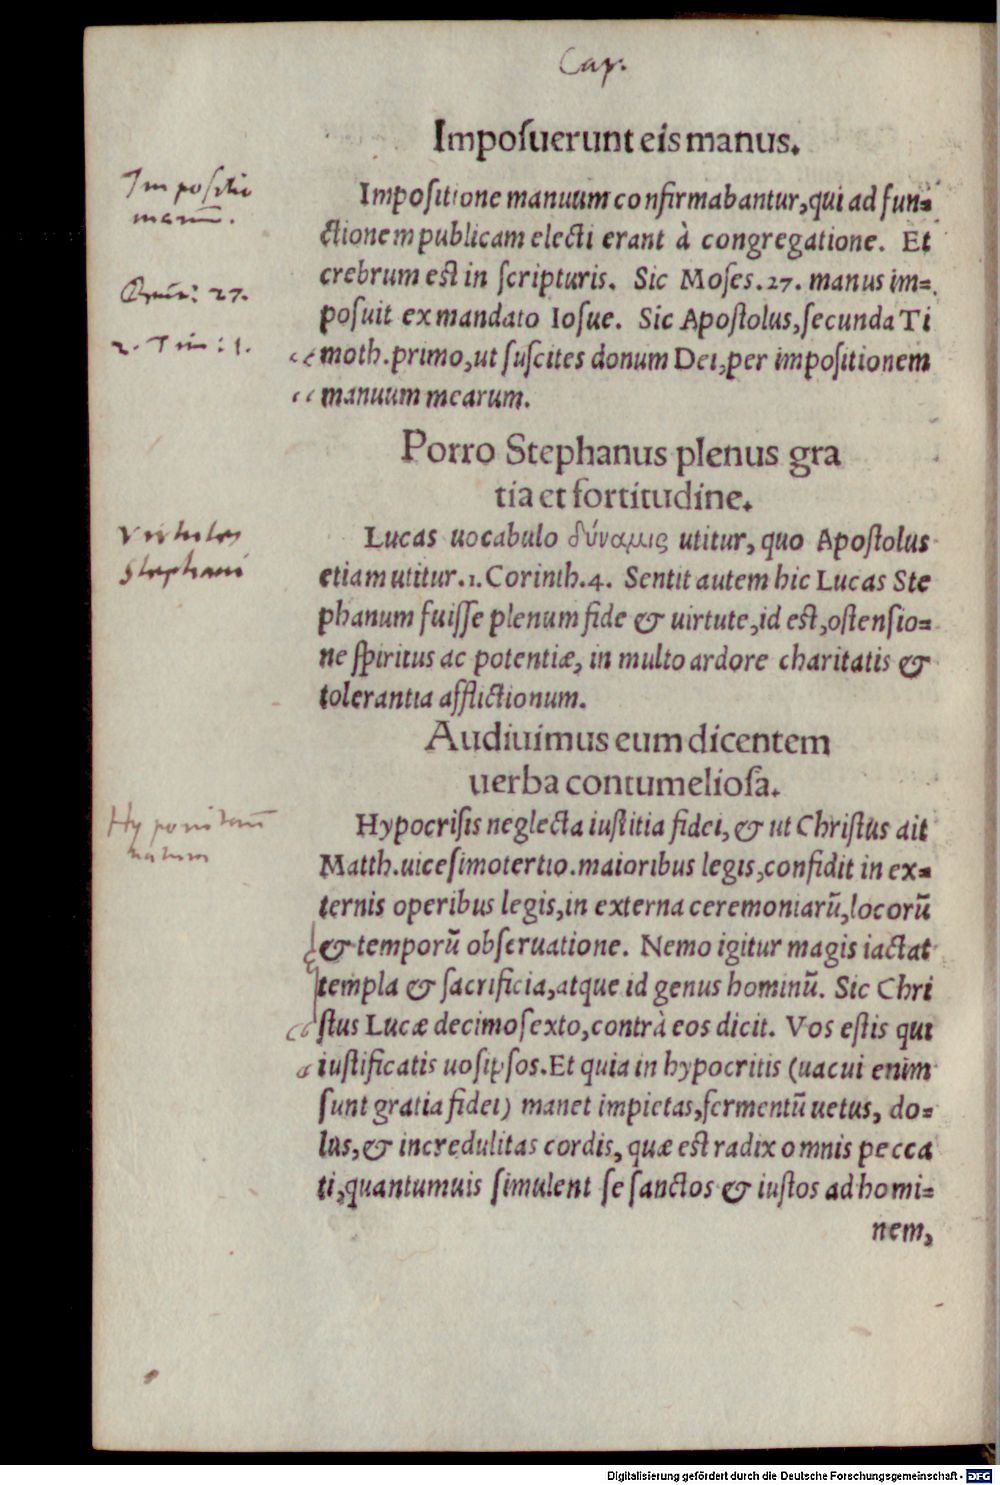 Cap.
Impoſuerunt eis manus.
Impoſitio
manuū.
Impoſitione manuum confirmabantur, qui ad fun=
ctionem publicam electi erant à congregatione. Et
crebrum est in ſcripturis. Sic Moſes. 27. manus im=
27.
poſuit ex mandato Ioſue. Sic Apoſtolus, ſecunda Ti
2. Tim: 1.
moth. primo, ut ſuſcites donum Dei, per impoſitionem
manuum mearum.
Porro Stephanus plenus gra
tia et fortitudine.
Virtutes
Stephani
Lucas uocabulo δύναμις utitur, quo Apoſtolus
etiam utitur. 1. Corinth. 4. Sentit autem hic Lucas Ste
phanum fuiſſe plenum fide & uirtute, id est, oſtenſio=
ne ſpiritus ac potentiæ, in multo ardore charitatis &
tolerantia afflictionum.
Audiuimus eum dicentem
uerba contumelioſa.
Hypocriſis neglecta iuſtitia fidei, & ut Chriſtus ait
Matth. uiceſimotertio. maioribus legis, confidit in ex=
ternis operibus legis, in externa ceremoniarū, locorū
& temporū obſeruatione. Nemo igitur magis iactat
templa & ſacrificia, atque id genus hominū. Sic Chri
ſtus Lucæ decimoſexto, contrà eos dicit. Vos eſtis qui
iuſtificatis uoſipſos. Et quia in hypocritis (uacui enim
ſunt gratia fidei) manet impietas, fermentū uetus, do=
lus, & incredulitas cordis, quæ est radix omnis pecca
ti, quantumuis ſimulent ſe ſanctos & iuſtos ad homi=
nem,
Digitalisierung gefördert durch die Deutsche Forschungsgemeinschaft - DFG